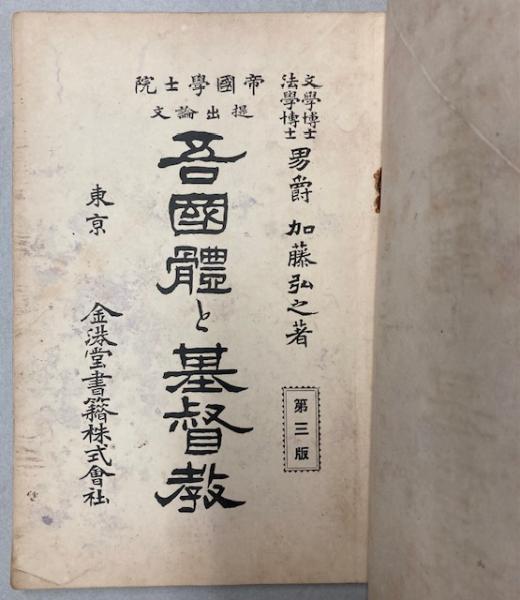 文學博士
法學博士
男爵 加藤弘之著
第三版
帝國學士院
提出論文
吾國體と基督教
東京 金港堂書籍株式會社